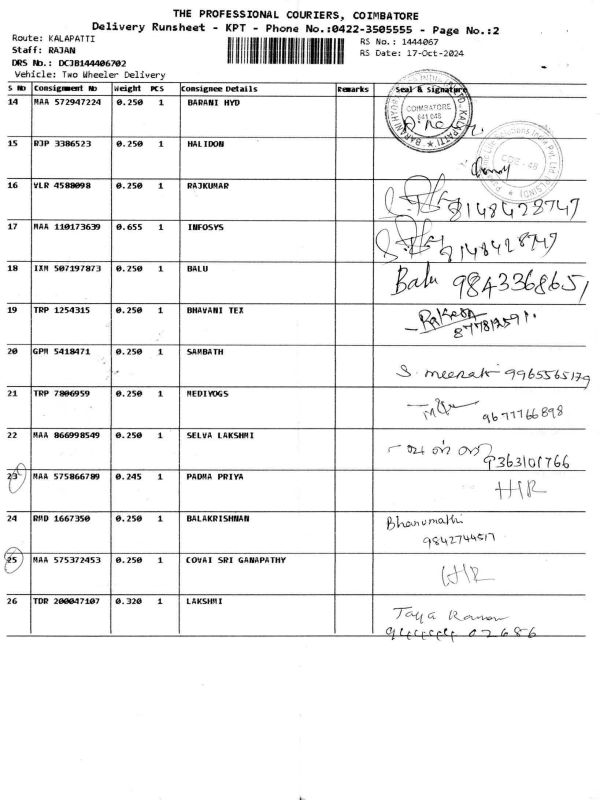 THE PROFESSIONAL COURIERS, COIMBATORE
Delivery Runsheet - KPT - Phone No.:0422-3505555 - Page No.:2
Route: KALAPATTI
RS No.: 1444067
Staff: RAJAN
RS Date: 17-Oct-2024
DRS No.: DCJB144406702
Vehicle: Two Wheeler Delivery
S No Consignment No Weight PCS Consignee Details Remarks Seal & Signature
14 MAA 572947224 0.250 1 BARANI HYD
COIMBATORE
641 048
15 RJP 3386523 0.250 1 HALIDON
CBE - 48
16 VLR 4588098 0.250 1 RAJKUMAR
8148428747
17 MAA 110173639 0.655 1 INFOSYS
8148428749
18 IXM 507197873 0.250 1 BALU Balu 9843368651
19 TRP 1254315 0.250 1 BHAVANI TEX
20 GPM 5418471 0.250 1 SAMBATH
9965565179
21 TRP 7806959 0.250 1 MEDIYOGS
9677766898
22 MAA 866998549 0.250 1 SELVA LAKSHMI
9363101766
23 MAA 575866789 0.245 1 PADMA PRIYA
HR
24 RMD 1667350 0.250 1 BALAKRISHNAN Bhanumathi
9842744517
25 MAA 575372453 0.250 1 COVAI SRI GANAPATHY
HR
26 TDR 200047107 0.320 1 LAKSHMI